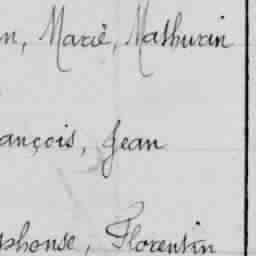 n, Marie, Mathurin
ançois, Jean
phonse, Florentin